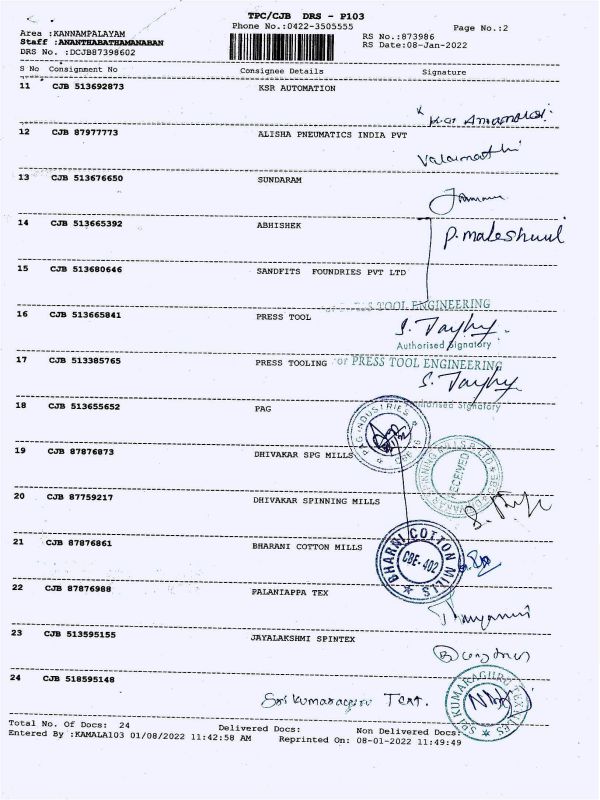 TPC/CJB DRS - P103
Phone No.:0422-3505555
Page No.:2
Area :KANNAMPALAYAM
Staff :ANANTHABATHAMANABAN
DRS No. :DCJB87398602
RS No.:873986
RS Date:08-Jan-2022
S No Consignment No Consignee Details Signature
11 CJB 513692873 KSR AUTOMATION
12 CJB 87977773 ALISHA PNEUMATICS INDIA PVT
Valarmathi
13 CJB 513676650 SUNDARAM
14 CJB 513665392 ABHISHEK
15 CJB 513680646 SANDFITS FOUNDRIES PVT LTD
TOOL ENGINEERING
16 CJB 513665841 PRESS TOOL
Authorised Signatory
17 CJB 513385765 PRESS TOOLING
For PRESS TOOL ENGINEERING
Authorised Signatory
18 CJB 513655652 PAG
PAG INDUSTRIES
19 CJB 87876873 DHIVAKAR SPG MILLS
RECEIVED
20 CJB 87759217 DHIVAKAR SPINNING MILLS
21 CJB 87876861 BHARANI COTTON MILLS
BHARNI COTTON MILLS
CBE-402
22 CJB 87876988 PALANIAPPA TEX
23 CJB 513595155 JAYALAKSHMI SPINTEX
24 CJB 518595148
Sri Kumaraguru Text.
SRI KUMARAGURU TEXTILES
Total No. Of Docs: 24 Delivered Docs: Non Delivered Docs:
Entered By :KAMALA103 01/08/2022 11:42:58 AM Reprinted On: 08-01-2022 11:49:49